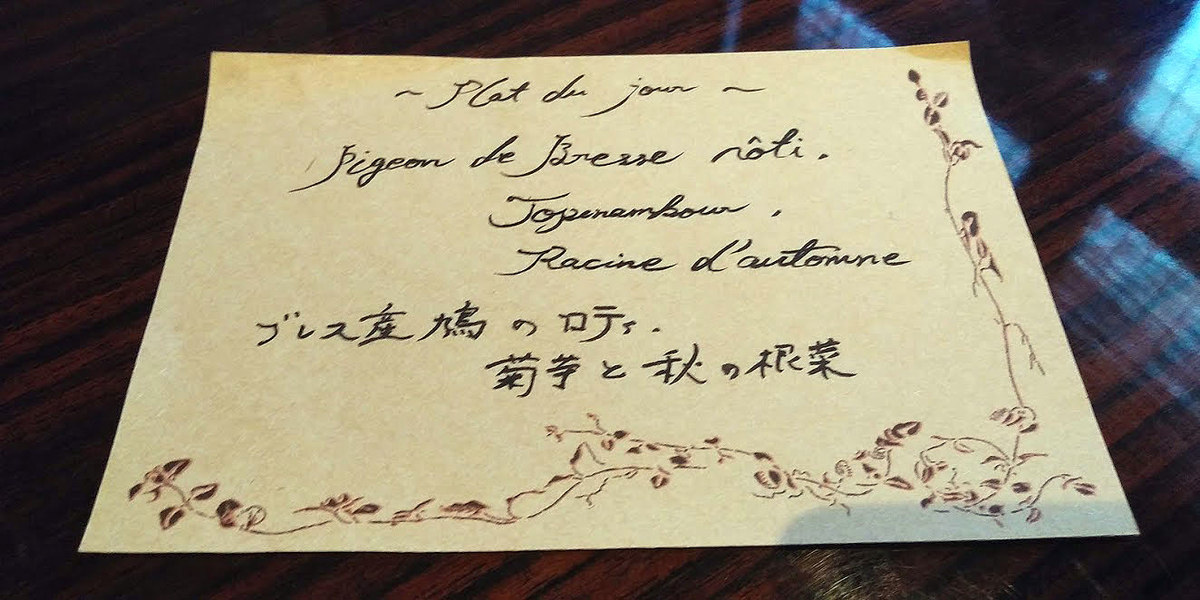 ~ Plat du jour ~
Pigeon de Bresse rôti.
Topinambour.
Racine d'automne
ブレス産鳩のロティ.
菊芋と秋の根菜